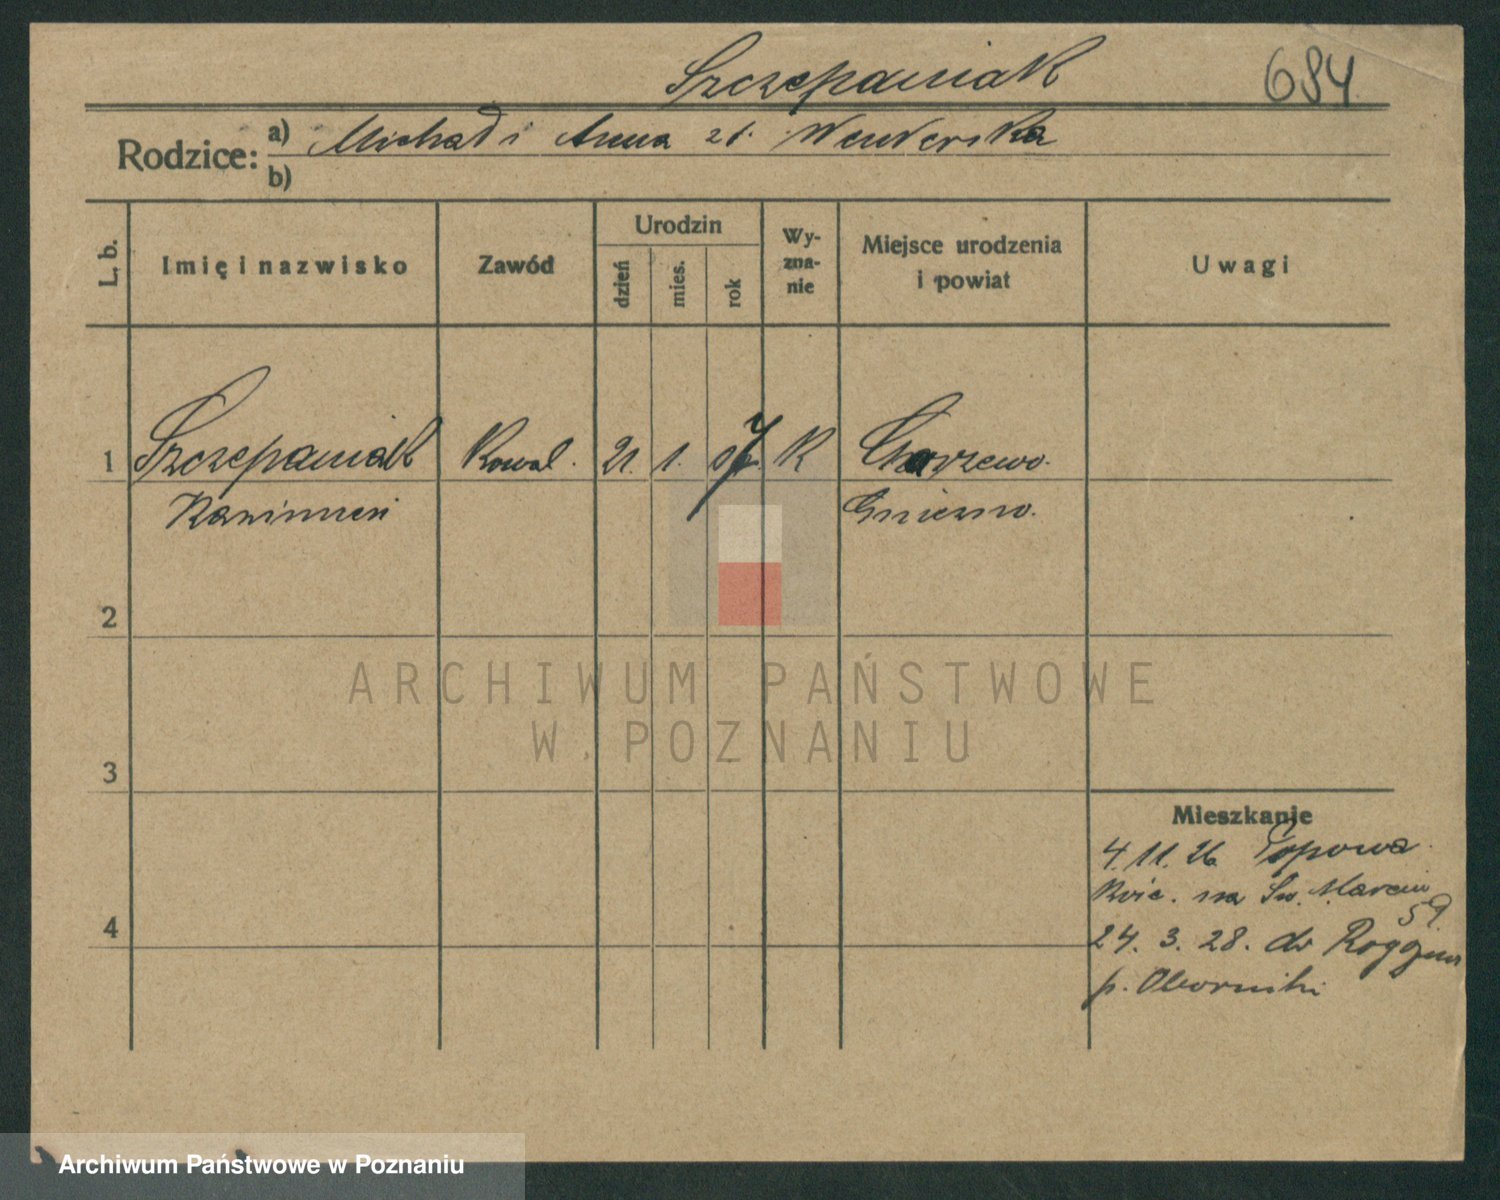 Szczepaniak
684
Rodzice: a) Michał i Anna z d. Wenderska
b)
L. b.
Imię i nazwisko
Zawód
Urodzin
dzień
mies.
rok
Wy-
zna-
nie
Miejsce urodzenia
i powiat
Uwagi
1 Szczepaniak Kowal. 21. 1. K
Kazimierz Gniezno.
2
3
4
Mieszkanie
4. 11. 26 Topowa
Kośc. na Św. Marcin
59.
24. 3. 28. do
p. Oborniki
ARCHIWUM PAŃSTWOWE
W POZNANIU
Archiwum Państwowe w Poznaniu